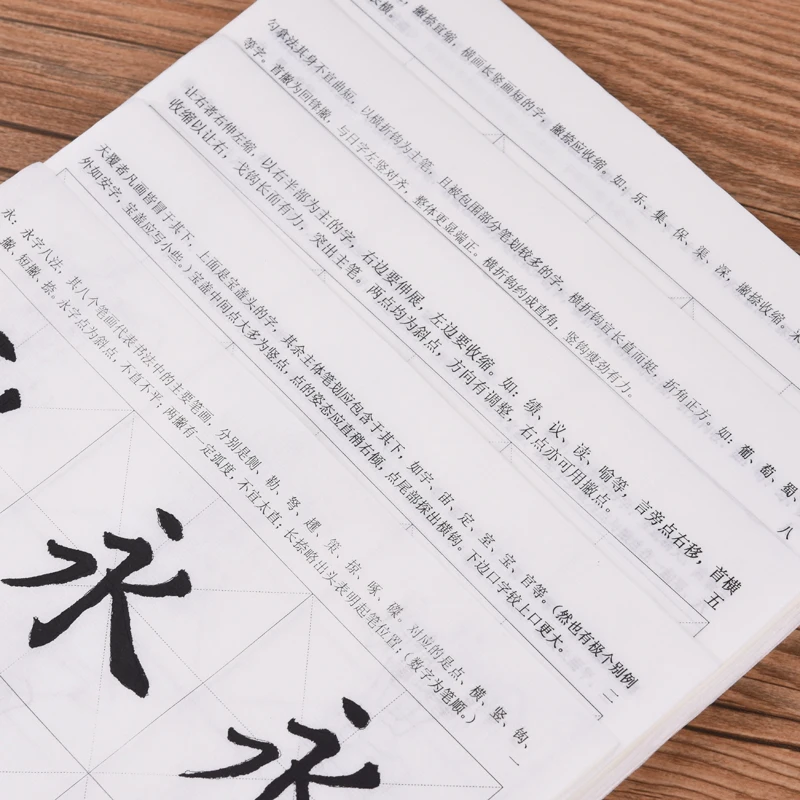 ，撇捺宜缩，横画长竖画短的字，撇捺应收缩。如：乐、集、保、渠、深，撇捺收缩。
长横。
勾拿法其身不宜曲短，以横折钩为主笔，且被包围部分笔划较多的字，横折钩宜长直而挺，折角正方。如：葡、萄、蜀、
等字。首撇为回锋撇，与日字左竖对齐，整体更显端正。横折钩约成直角，竖钩瘦劲有力。
八
让右者右伸左缩，以右半部为主的字，右边要伸展，左边要收缩。如：绩、议、读、喻等，言旁点右移，首横
收缩以让右，戈钩长而有力，突出主笔。两点均为斜点，方向有调整，右点亦可用撇点。
五
天覆者凡画皆冒于其下，上面是宝盖头的字，其余主体笔划应包含于其下，如字、宙、定、室、宝、官等。（然也有极个别例
外如安字，宝盖应写小些。）宝盖中间点大多为竖点，点的姿态应直稍右倾，点尾部探出横钩。下边口字较上口更大。
二
永：永字八法，其八个笔画代表书法中的主要笔画，分别是侧、勒、弩、趯、策、掠、啄、磔。对应的是点、横、竖、钩、
撇、短撇、捺。永字点为斜点，不直不平；两撇有一定弧度，不宜太直；长捺略出头表明起笔位置；（数字为笔顺。）
一
永
永